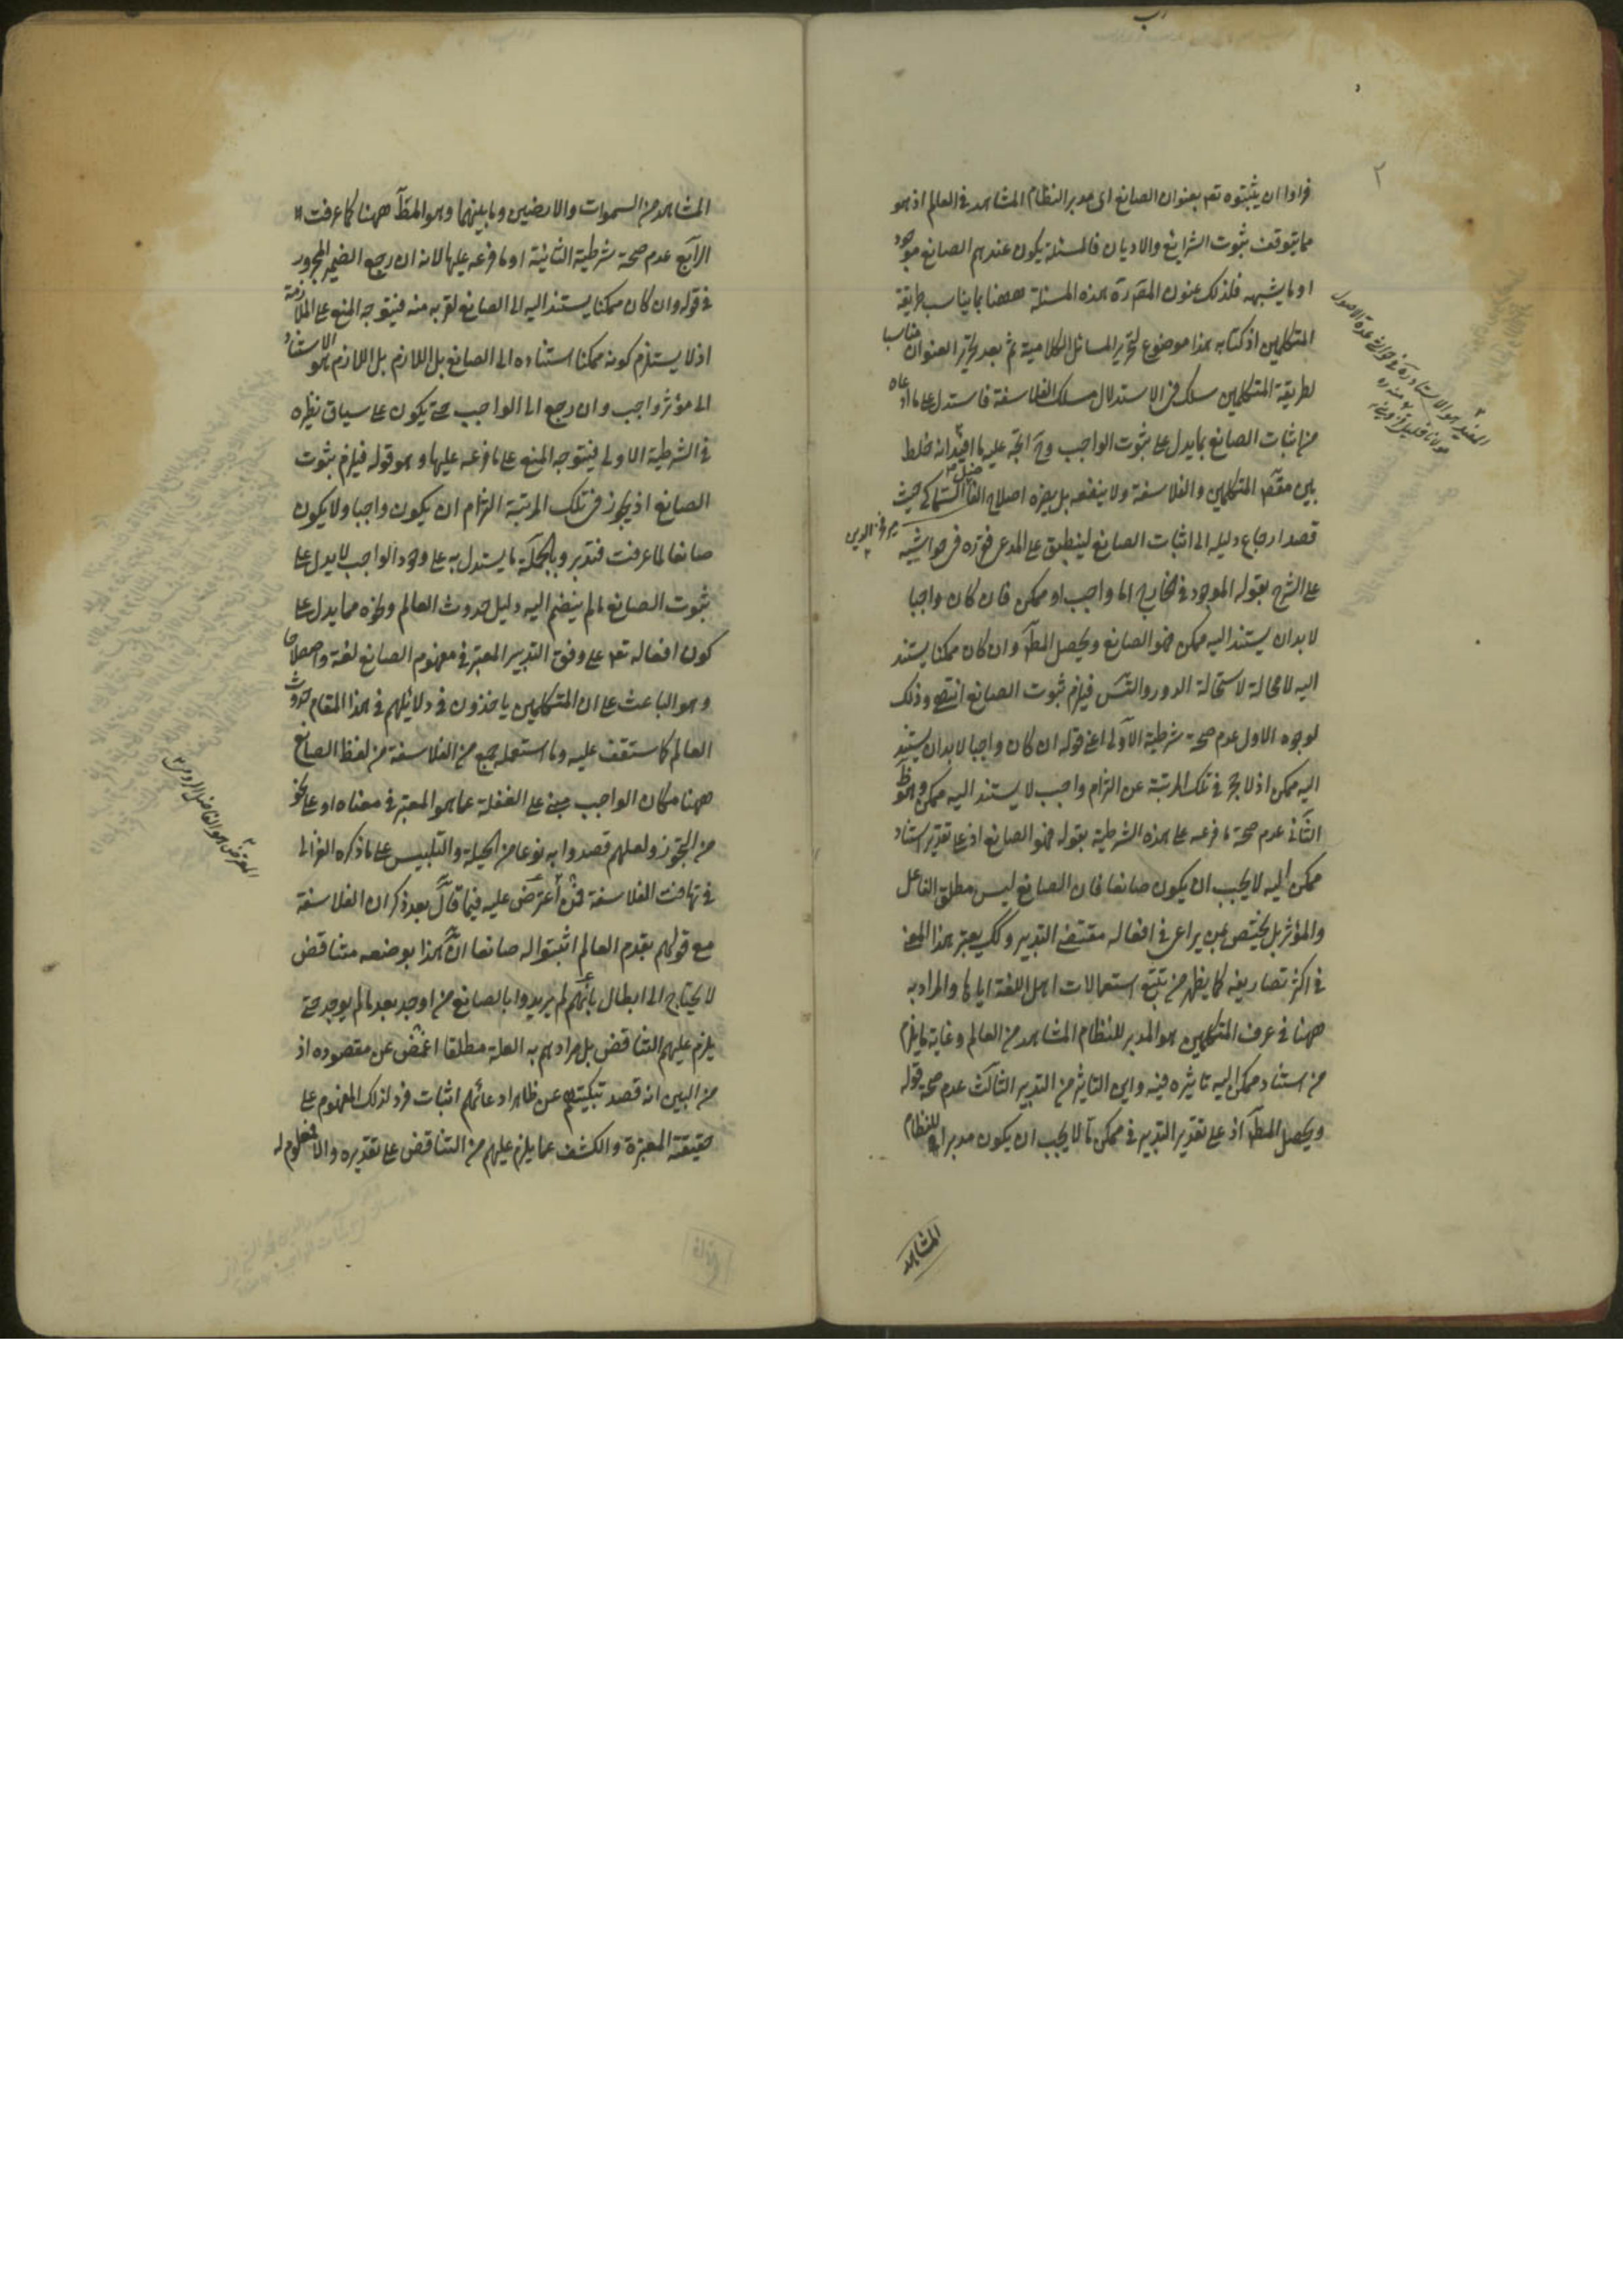 فرادوا ان يثبتوه تعم بعنوان الصانع اى مدبر النظام المشاهد فى العالم اذ هو
مما يتوقف ثبوت الشرايع والاديان فالمسئلة يكون عندهم الصانع موجود
او ما يشبهه فلذلك عنون المقررة هذه المسئلة ههنا بما يناسب طريقة
المتكلمين اذ كتابه هذا موضوع لتحرير المسائل الكلامية ثم بعد تحرير العنوان مناسبا
لطريقة المتكلمين سلك فى الاستدلال مسلك الفلاسفة فاستدل على ما ادعاه
من اثبات الصانع بما يدل على ثبوت الواجب وح اتجه عليه ما افيد انه خلط
بين مقصد المتكلمين والفلاسفة ولا ينفعه بل يضره اصلاح الفاضل السماكى حيث
قصد ارجاع دليله الى اثبات الصانع لينطبق على المدعى فقرره فى حواشيه
على الشرح بقوله الموجود فى الخارج اما واجب او ممكن فان كان واجبا
لا بد ان يستند اليه ممكن فهو الصانع ويحصل المط وان كان ممكنا يستند
اليه لا محالة لاستحالة الدور والتس فيلزم ثبوت الصانع انتهى وذلك
لوجوه الاول عدم صحة شرطية الاولى اعنى قوله ان كان واجبا لا بد ان يستند
اليه ممكن اذ لا حجر فى تلك المرتبة عن التزام واجب لا يستند اليه ممكن وهو ظ
الثانى عدم صحة ما فرعه على هذه الشرطية بقوله فهو الصانع اذ على تقدير استناد
ممكن اليه لا يجب ان يكون صانعا فان الصانع ليس مطلق الفاعل
والمؤثر بل يختص بمن يراعى فى افعاله مقتضى التدبير ولك يعتبر هذا المعنى
فى اكثر تصاريفه كما يظهر من تتبع استعمالات اهل اللغة اياها والمراد به
ههنا فى عرف المتكلمين هو المدبر للنظام المشاهد من العالم وغاية ما يلزم
من استناد ممكن اليه تاثيره فيه واين التاثير من التدبير الثالث عدم صحة قوله
ويحصل المط اذ على تقدير التدبير فى ممكن ما لا يجب ان يكون مدبرا للنظام
المشاهد
المفيد هو الاستاد ره فى حواشى عدة الاصول
مولانا خليل قزوينى
مير فخر الدين
المشاهد من السموات والارضين وما بينهما وهو المط ههنا كما عرفت
الرابع عدم صحة شرطية الثانية او ما فرعه عليها لانه ان رجع الضمير المجرور
فى قوله وان كان ممكنا يستند اليه الى الصانع لقربه منه فيتوجه المنع على الملازمة
اذ لا يستلزم كونه ممكنا استناده الى الصانع بل اللازم بل اللازم هو الاستناد
الى مؤثر واجب وان رجع الى الواجب حتى يكون على سياق نظيره
فى الشرطية الاولى فيتوجه المنع على ما فرعه عليها وهو قوله فيلزم ثبوت
الصانع اذ يجوز فى تلك المرتبة التزام ان يكون واجبا ولا يكون
صانعا لما عرفت فتدبر وبالجملة ما يستدل به على وجود الواجب لا يدل على
ثبوت الصانع ما لم ينضم اليه دليل حدوث العالم ونحوه مما يدل على
كون افعاله تعم على وفق التدبير المعتبر فى مفهوم الصانع لغة واصطلاحا
وهو الباعث على ان المتكلمين ياخذون فى دلائلهم فى هذا المقام حدوث
العالم كما ستقف عليه وما استعمله جمع من الفلاسفة من لفظ الصانع
ههنا مكان الواجب مبنى على الغفلة عما هو المعتبر فى معناه او على نحو
من التجوز ولعلهم قصدوا به نوعا من الحيلة والتلبيس على ما ذكره الغزالى
فى تهافت الفلاسفة فمن اعترض عليه فيما قال بعد ذكر ان الفلاسفة
مع قولهم بقدم العالم اثبتوا له صانعا ان هذا بوضعه متناقض
لا يحتاج الى ابطال بانهم لم يريدوا بالصانع من اوجد بعد ما لم يوجد حتى
يلزم عليهم التناقض بل مرادهم به العلة مطلقا اغمض عن مقصوده اذ
من البين انه قصد تبكيتهم عن ظاهر ادعائهم اثبات فرد لذلك المفهوم على
حقيقته المعتبرة والكشف عما يلزم عليهم من التناقض على تقديره والا فمعلوم له
المعترض هو الفاضل الرومى